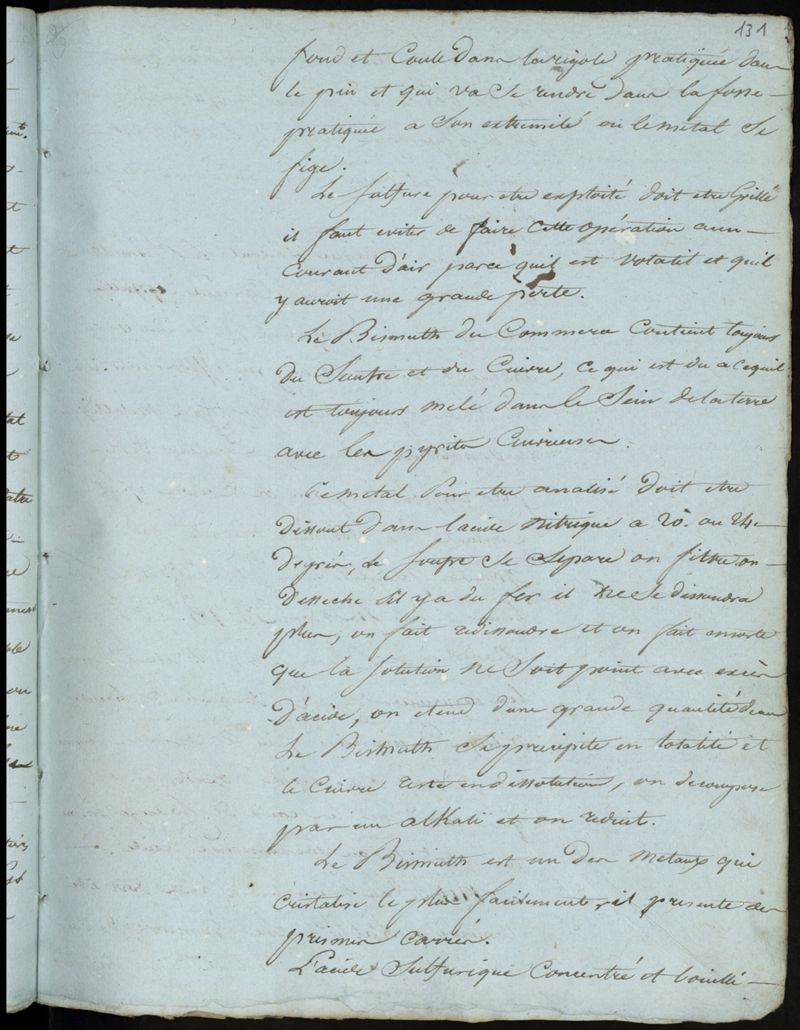 131
fond et Coule dans la rigole pratiquée dans
le pin et qui va se rendre dans la fosse
pratiquée a son extremité ou le metal se
fige.
Le sulfure pour etre exploité doit etre Grillé
il faut eviter de faire cette opération a un
Courant d'air parce qu'il est volatil et qu'il
y auroit une grande perte.
Le Bismuth du Commerce Contient toujours
du Soufre et du Cuivre, ce qui est du a ce quil
est toujours melé dans le Sein de la terre
avec les pyrites Cuivreuses.
Ce metal pour etre analisé doit etre
Dissout dans lacide nitrique a 20. ou 24.
Degrés, le soufre se separe on filtre on
Desseche s'il y a du fer il ne se dissoudra
plus, on fait redissoudre et on fait ensorte
que la solution ne soit point avec excès
D'acide, on etend d'une grande quantité deau
Le Bismuth se precipite en totalité et
le Cuivre reste en dissolution, on decompose
par un alkali et on reduit.
Le Bismuth est un des metaux qui
Cristalise le plus facilement, il presente des
prismes carrés.
L'acide Sulfurique Concentré et bouilli